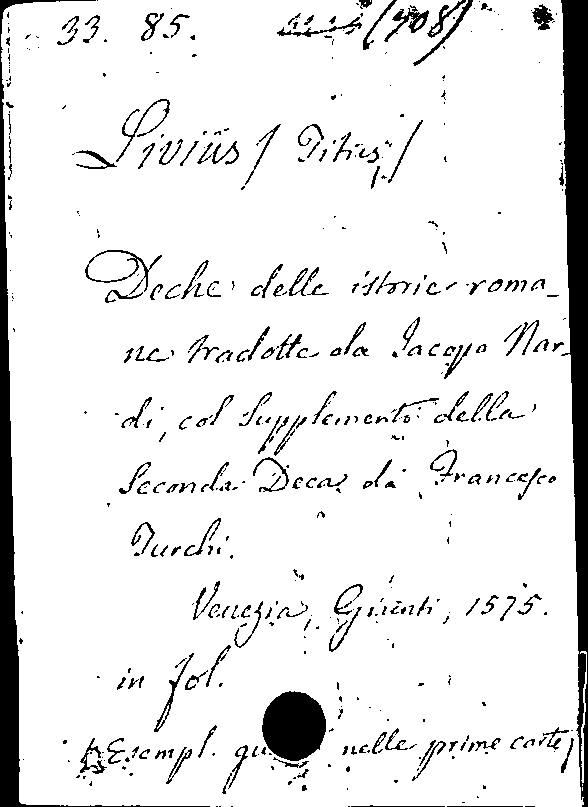 33. 85. (408)
Livius / Titus /
Deche delle istorie roma-
ne tradotte da Jacopo Nar-
di, col Supplemento della
Seconda Deca da Francesco
Turchi.
Venezia, Giunti, 1575.
in fol.
Esempl. nelle prime carte